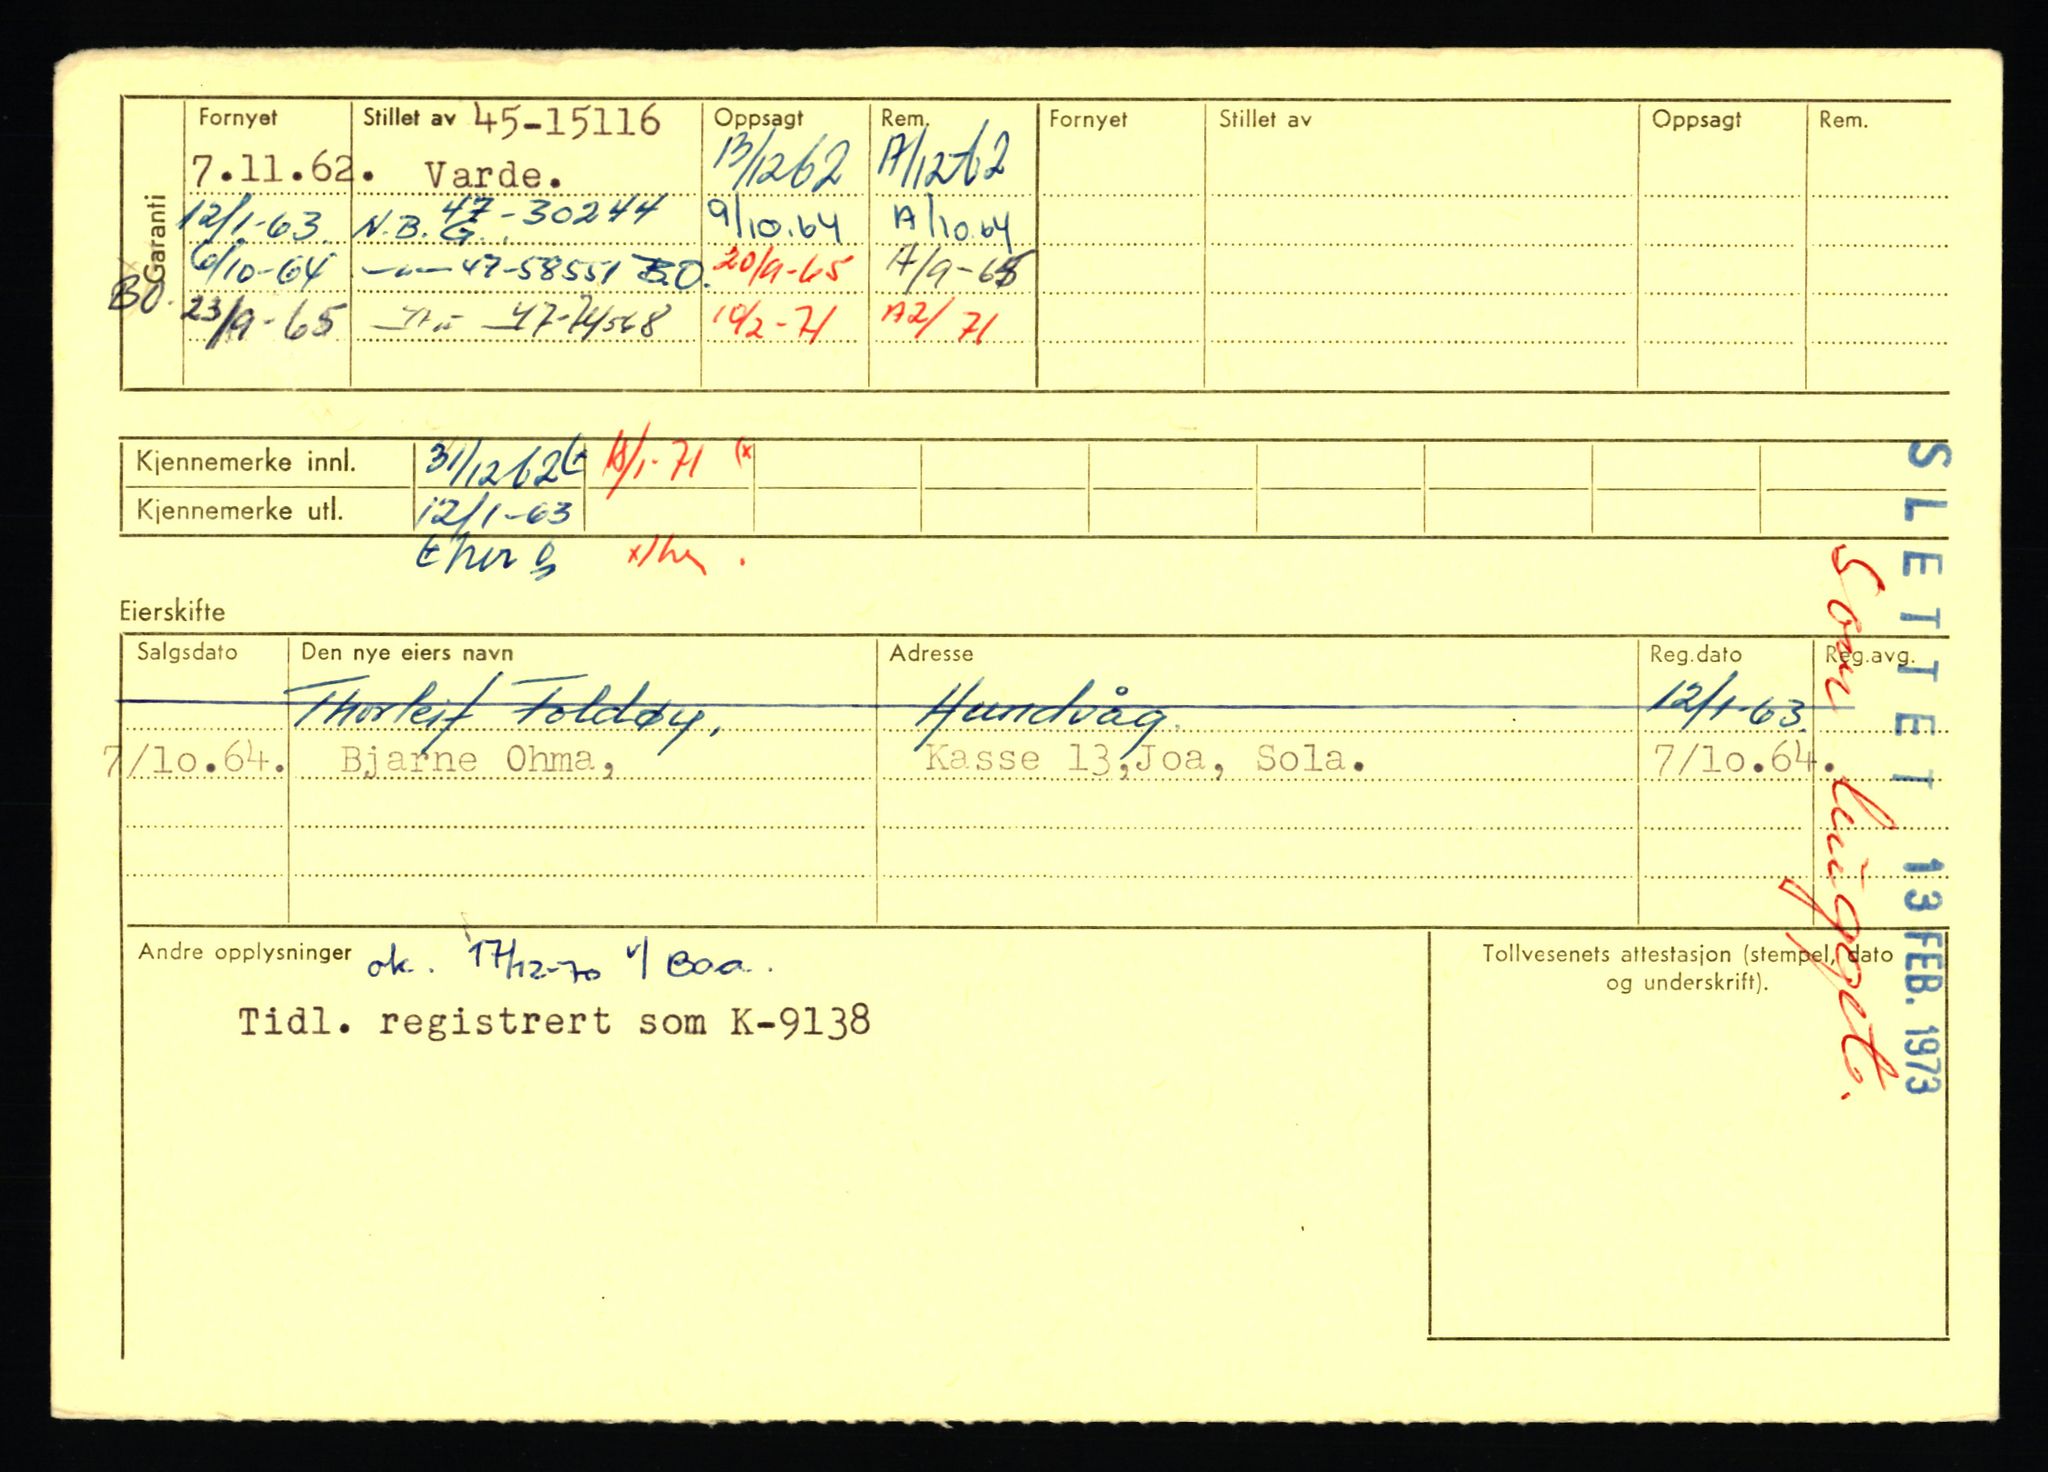 Garanti
Fornyet Stillet av 45-15116 Oppsagt Rem. Fornyet Stillet av Oppsagt Rem.
7.11.62. Varde. 13/12 62 A/12-62
12/1-63 N.B.G. 47-30244 9/10.64 A/10.64
6/10-64 —"— 47-58551 B.O. 20/9-65 A/9-65
BO. 23/9-65 47-74568 10/2-71 A2/71
Kjennemerke innl. 31/12 62 /1-71 (x
Kjennemerke utl. 12/1-63
her x)her.
Eierskifte
Salgsdato Den nye eiers navn Adresse Reg.dato Reg.avg.
Thorleif Foldøy, Hundvåg. 12/1-63
7/10.64. Bjarne Ohma, Kasse 13,Joa, Sola. 7/10.64.
Andre opplysninger ok. 17/12-70 v/ Boa.
Tidl. registrert som K-9138
Tollvesenets attestasjon (stempel, dato
og underskrift).
SLETTET 13 FEB. 1973
Som hugget.